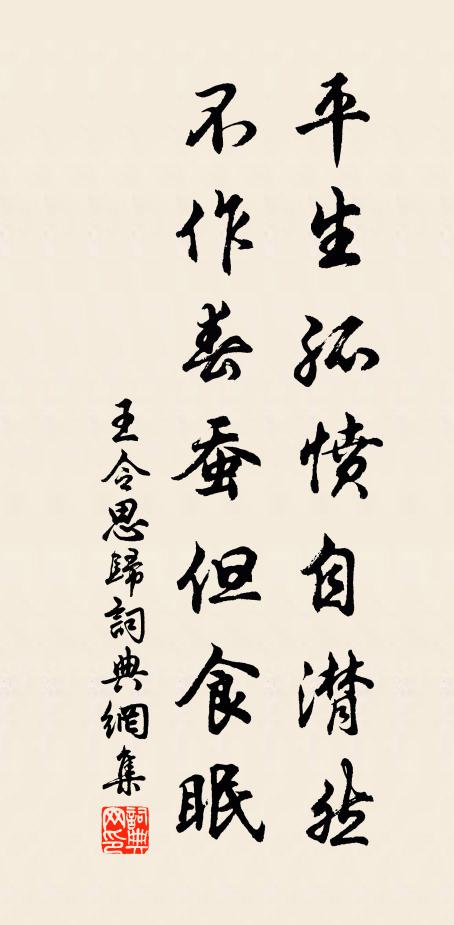 平生孤憤自潸然
不作春蚕但食眠
王令思歸詞典網集
詞典網印